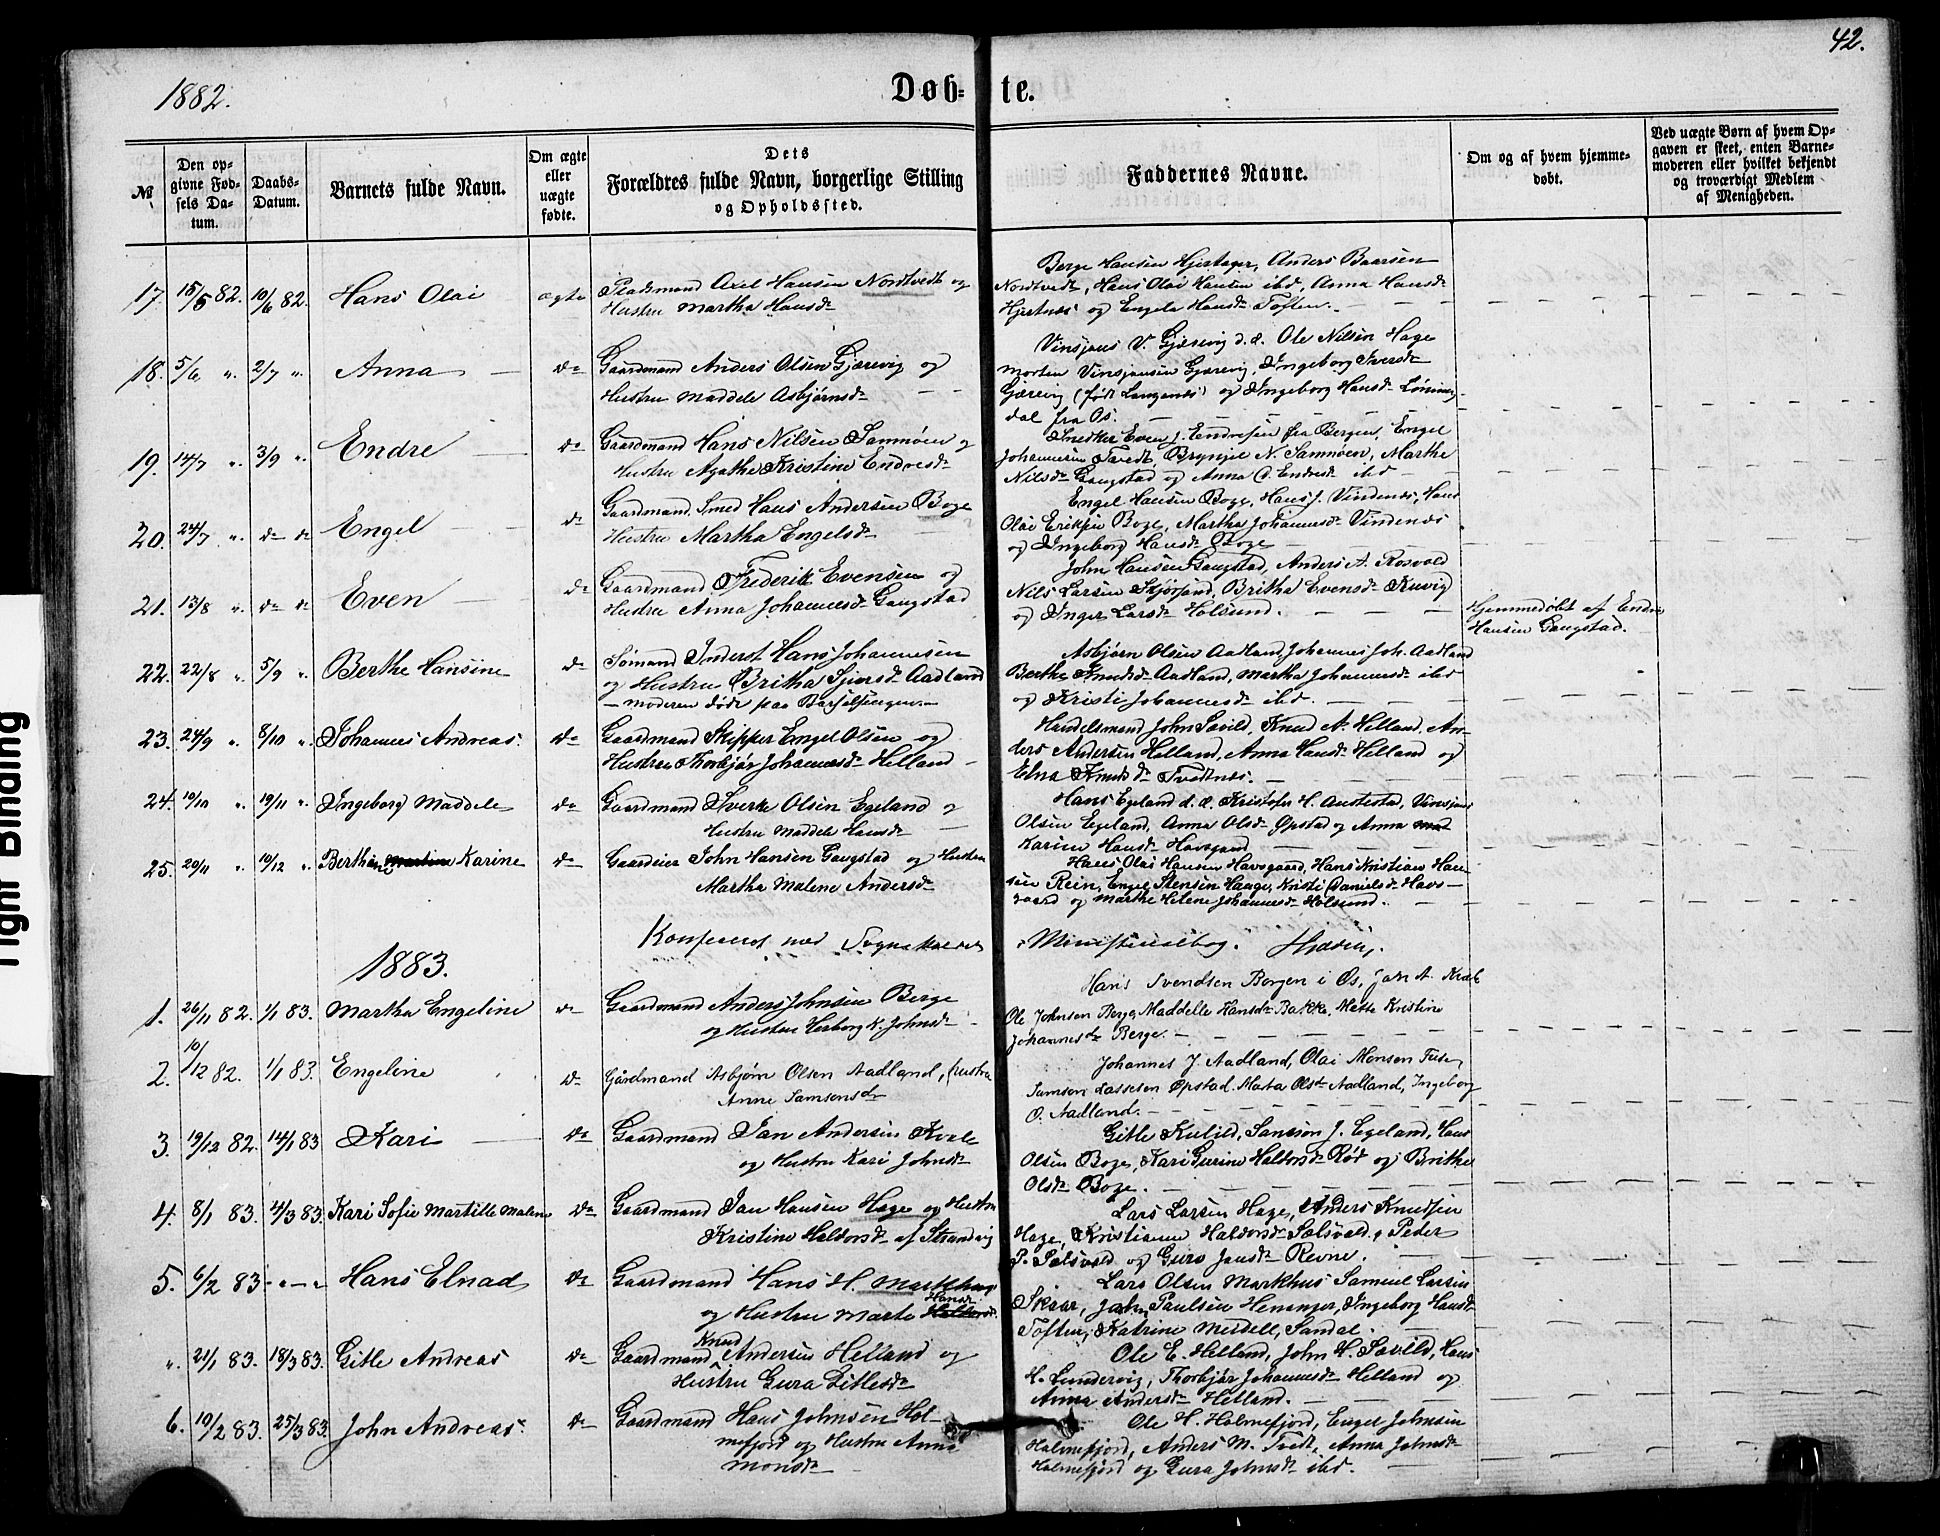 42.
1882.
Døb- te.
№
Den opgivne Fødsels Datum.
Daabs-Datum.
Barnets fulde Navn.
Om ægte eller uægte fødte.
Dets Forældres fulde Navn, borgerlige Stilling og Opholdssted.
Faddernes Navne.
Om og af hvem hjemmedøbt.
Ved uægte Børn af hvem Opgaven er skeet, enten Barnemoderen eller hvilket bekjendt og troværdigt Medlem af Menigheden.
17. 15/5 82. 10/6 82. Hans Olai ægte Pladsmand Axel Hansen Nordtvedt og
Hustru Martha Hansdr
Berge Hansen Hjertager, Anders Baarsen
Nordtvedt, Hans Olai Hansen ibd, Anna Hansdr
Hjertnes og Engele Hansdr Toften.
18. 5/6 " 2/7 " Anna do Gaardmand Anders Olsen Gjærevig og
Hustru Maddele Asbjørnsdr
Vinsjans V. Gjærevig d.e. Ole Nilsen Hage
Morten Vinsjansen Gjærevig, Ingeborg Iversdr
Gjærevig (født Langenæs) og Ingeborg Hansdr Løning-
dal fra Os.
19. 14/7 " 3/9 " Endre do Gaardmand Hans Nilsen Samnøen og
Hustru Agathe Kristine Endresdr
Snedker Even J. Endresen fra Bergen, Engel
Johannesen Tvedt, Brynjel N. Samnøen, Marthe
Nilsdr Gangstad og Anna O. Endresdr ibd
20. 24/7 " do do Engel do Gaardmand, Smed Hans Andersen Boge
Hustru Martha Engelsdr
Engel Hansen Boge, Hans J. Vindenes, Hans
Olai Eriksen Boge, Martha Johannesdr Vindenes
og Ingeborg Hansdr Boge
21. 13/8 " do do Even do Gaardmand Frederik Evensen og
Hustru Anna Johannesdr Gangstad
John Hansen Gangstad, Anders A. Rosvold
Nils Larsen Skjørsand, Britha Evensdr Kuvig
og Inger Larsdr Holsund.
Hjemmedøbt af Endre
Hansen Gangstad.
22. 22/8 " 5/9 " Berthe Hansine do Sømand Inderst Hans Johannesen
og Hustru Britha Sjursdr Aadland
– Moderen døde paa Barselsengen. –
Asbjørn Olsen Aadland, Johannes Joh. Aadland
Berthe Knudsdr Aadland, Martha Johannesdr ibd
og Kristi Johannesdr ibd.
23. 24/9 " 8/10 " Johannes Andreas. do Gaardmand Skipper Engel Olsen og
Hustru Thorbjør Johannesdr Helland
Handelsmand John Søvild, Knud A. Helland, An-
ders Andersen Helland, Anna Hansdr Helland og
Elna Knudsdr Tvedtnes.
24. 19/10 " 19/11 " Ingeborg Maddele do Gaardmand Sverke Olsen Egeland og
Hustru Maddele Hansdr
Hans Egeland d.e. Kristofer H. Austestad, Vinsjans
Olsen Egeland, Anna Olsdr Øpstad og Anna
Karine Hansdr Havsgaard
25. 20/11 " 10/12 " Berthine Martine Karine do Gaardeier John Hansen Gangstad og Hustru
Martha Malene Andersdr
Hans Olai Hansen Havsgaard, Hans Kristian Han-
sen Rein, Engel Stensen Hauge, Kristi Danielsdr Havs-
gaard og Marthe Helene Johannesdr Holsund.
Konfereret med Sognekaldets
Ministerialbog.
1883.
1. 26/11 82. 1/1 83. Martha Engeline do Gaardmand Anders Johnsen Berge
og Hustru Herborg K. Johnsdr
Hans Svendsen Borgen i Os, Jan A. Kvale
Ole Johnsen Berge, Maddelle Hansdr Bakke, Mette Kristine
Johannesdr Berge.
2. 10/12 82. 1/1 83. Engeline do Gårdmand Asbjørn Olsen Aadland, Hustru
Anne Samsonsdr
Johannes J. Aadland, Olai Monsen Fuse,
Samson Lassesen Øpstad. Marta Olsdr Aadland, Ingeborg
O. Aadland.
3. 19/12 82. 14/1 83 Kari do Gaardmand Jan Andersen Kvale
og Hustru Kari Johnsdr
Gitle Kulild, Samson J. Egeland, Hans
Olsen Boge, Kari Gurine Haldorsdr Rød og Brithe
Olsdr Boge.
4. 8/1 83. 4/3 83. Kari Sofie Martille Malene do Gaardmand Jan Hansen Hage og Hustru
Kristine Haldorsdr af Strandvig
Lars Larsen Hage, Anders Knudsen
Hage, Kristianne Haldorsdr Sælsvold, Peder
P. Sælsvold og Guro Jansdr Revne.
5. 6/2 83 - " - " Hans Elnad do Gaardmand Hans H. Markhus
og Hustru Marte Hansdr
Lars Olsen Markhus Samuel Larsen
Skaar, John Paulsen Henanger, Ingeborg Hansdr
Toften, Katrine Meidell, Sandal.
" 21/1 83. 18/3 83. Gitle Andreas do Gaardmand Knud Andersen Helland og
Hustru Gura Gitlesdr
Ole E. Helland, John H. Søvild, Hans
H. Lundervig, Thorbjør Johannesdr Helland og
Anna Andersdr Helland.
6. 19/2 83. 25/3 83. John Andreas. do Gaardmand Hans Johnsen Hol-
mefjord og Hustru Anna
Monsdr
Ole H. Holmefjord, Engel Johnsen
Holmefjord, Anders M. Tvedt, Anna Johnsdr
Holmefjord og Gura Johnsdr ibd.
Tight Binding